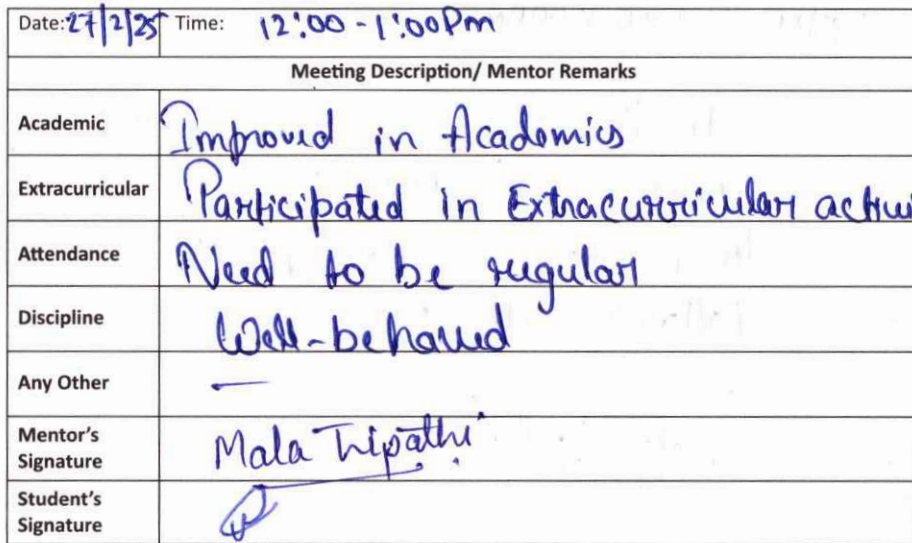 Date: 27/2/25 Time: 12:00 - 1:00 Pm
Meeting Description/ Mentor Remarks
Academic Improved in Academics
Extracurricular Participated in Extracurricular activi
Attendance Need to be regular
Discipline Well-behaved
Any Other —
Mentor's Signature Mala Tripathi
Student's Signature